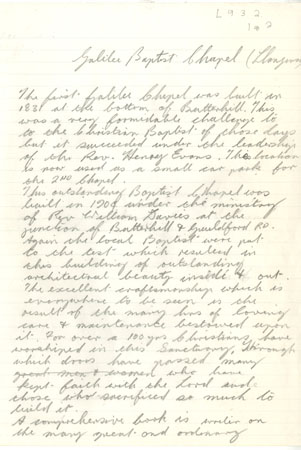 L932
Galilee Baptist Chapel
The first Galilee Chapel was built in
1831 at the bottom of Butterhill. This
was a very formidable challenge to
to the Christian Baptist of those days
but it succeeded under the leadership
of the Rev. Henry Evans. The location
is now used as a small car park for
the 2nd Chapel.
This outstanding Baptist Chapel was
built in 1904 under the ministry
of Rev William Davies at the
junction of Butterhill & Guildford RD.
Again the local Baptist were put
to the test which resulted in
this building of outstanding
architectural beauty inside & out.
The excellent craftsmanship which is
everywhere to be seen is the
result of the many hrs of loving
care & maintenance bestowed upon
it. For over a 100 yrs Christians have
worshiped in this Sanctuary, through
which doors have passed many
great men & women who have
kept faith with the Lord and
those who sacrificed so much to
build it.
A comprehensive book is written on
the many great and ordinary